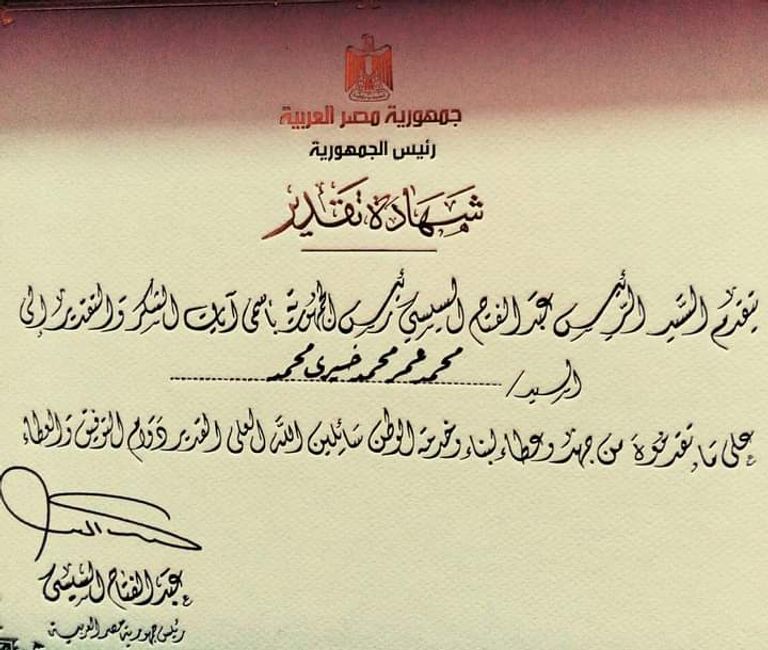 جمهورية مصر العربية
رئيس الجمهورية
شهادة تقدير
يتقدم السيد الرئيس عبد الفتاح السيسي رئيس الجمهورية باسمى آيات الشكر والتقدير إلى
السيد/ محمد عمر محمد خيرى محمد
على ما تقدموه من جهد وعطاء لبناء وخدمة الوطن سائلين الله العلى القدير دوام التوفيق والعطاء
عبد الفتاح السيسى
رئيس جمهورية مصر العربية